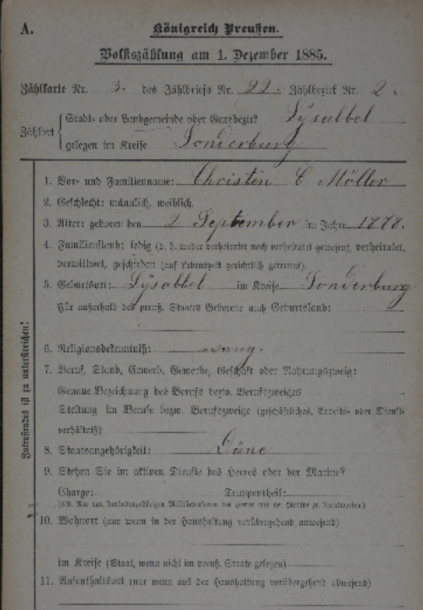 A.
Königreich Preußen.
Volkszählung am 1. Dezember 1885.
Zählkarte Nr. 3. des Zählbriefs Nr. 22. Zählbezirk Nr. 2.
Zählort
Stadt- oder Landgemeinde oder Gutsbezirk Lysabbel
gelegen im Kreise Sonderburg
1. Vor- und Familienname: Christen C Möller
2. Geschlecht: männlich, weiblich.
3. Alter: geboren den 2 September im Jahre 1878.
4. Familienstand: ledig (d. h. weder verheirathet noch verheirathet gewesen), verheiratet,
verwittwet, geschieden (auf Lebenszeit gerichtlich getrennt).
5. Geburtsort: Lysabbel im Kreise Sonderburg
Für außerhalb des preuß. Staates Geborene auch Geburtsland:
6. Religionsbekenntniß:
7. Beruf, Stand, Erwerb, Gewerbe, Geschäft oder Nahrungszweig:
Genaue Bezeichnung des Berufs bezw. Berufszweiges
Stellung im Berufe bezw. Berufszweige (geschäftliches, Arbeits- oder Dienst-
verhältniß)
8. Staatsangehörigkeit: Däne
9. Stehen Sie im aktiven Dienste des Heeres oder der Marine?
Charge: Truppentheil:
10. Wohnort (nur wenn in der Haushaltung vorübergehend anwesend)
im Kreise (Staat, wenn nicht im preuß. Staate gelegen)
11. Aufenthaltsort (nur wenn aus der Haushaltung vorübergehend abwesend)
Zutreffendes ist zu unterstreichen!